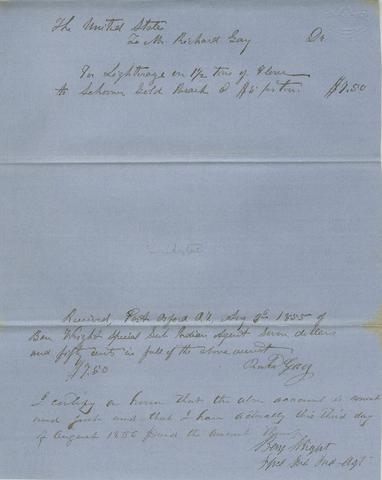 The United States
To Mr Richard Gay Dr
For Lighterage on 1½ tons of Flour
to Schooner Gold Beach @ $5 pr ton $7.50
Received, Port Orford O.T. Aug 3d 1855 of
Ben Wright Special Sub Indian Agent Seven dollars
and fifty cents in full of the above account
$7.50 Gay
I certify on honor that the above account is correct
and just and that I have actually this third day
of August 1855 paid the amount
Benj Wright
Spcl Sub Ind Agt